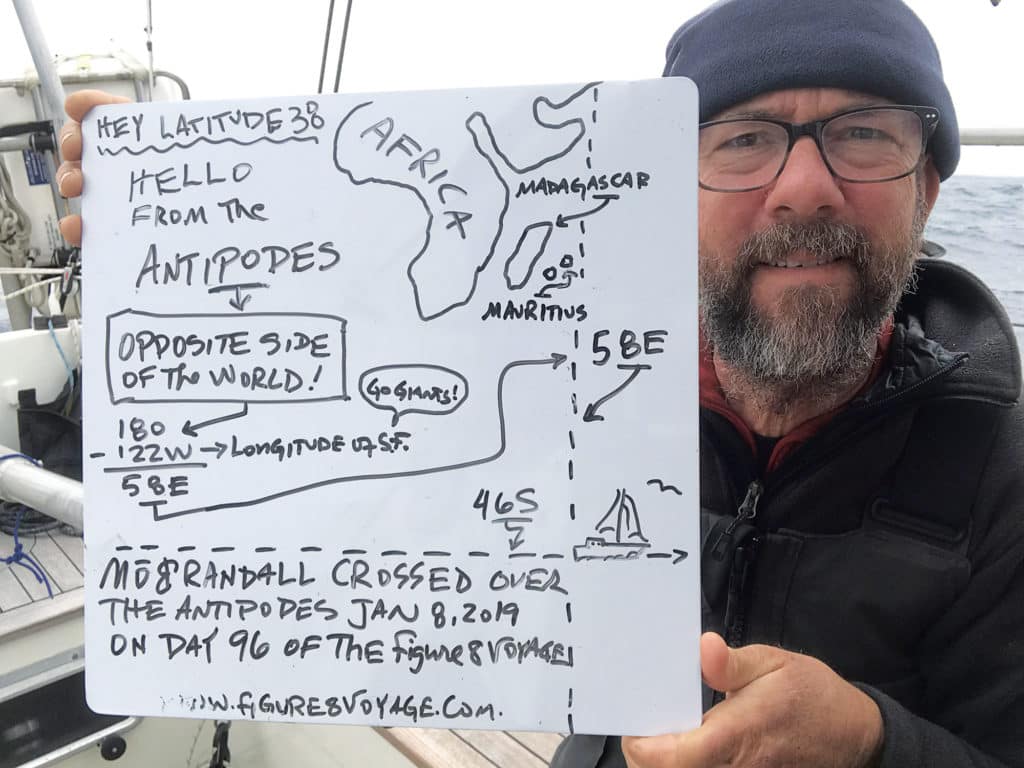 HEY LATITUDE 38
HELLO
FROM THE
ANTIPODES
OPPOSITE SIDE
OF THE WORLD!
180
- 122W → LONGITUDE OF S.F.
58E
GO GIANTS!
AFRICA
MADAGASCAR
MAURITIUS
58E
46S
MO & RANDALL CROSSED OVER
THE ANTIPODES JAN 8, 2019
ON DAY 96 OF THE figure 8 VOYAGE
WWW.FIGURE8VOYAGE.COM.